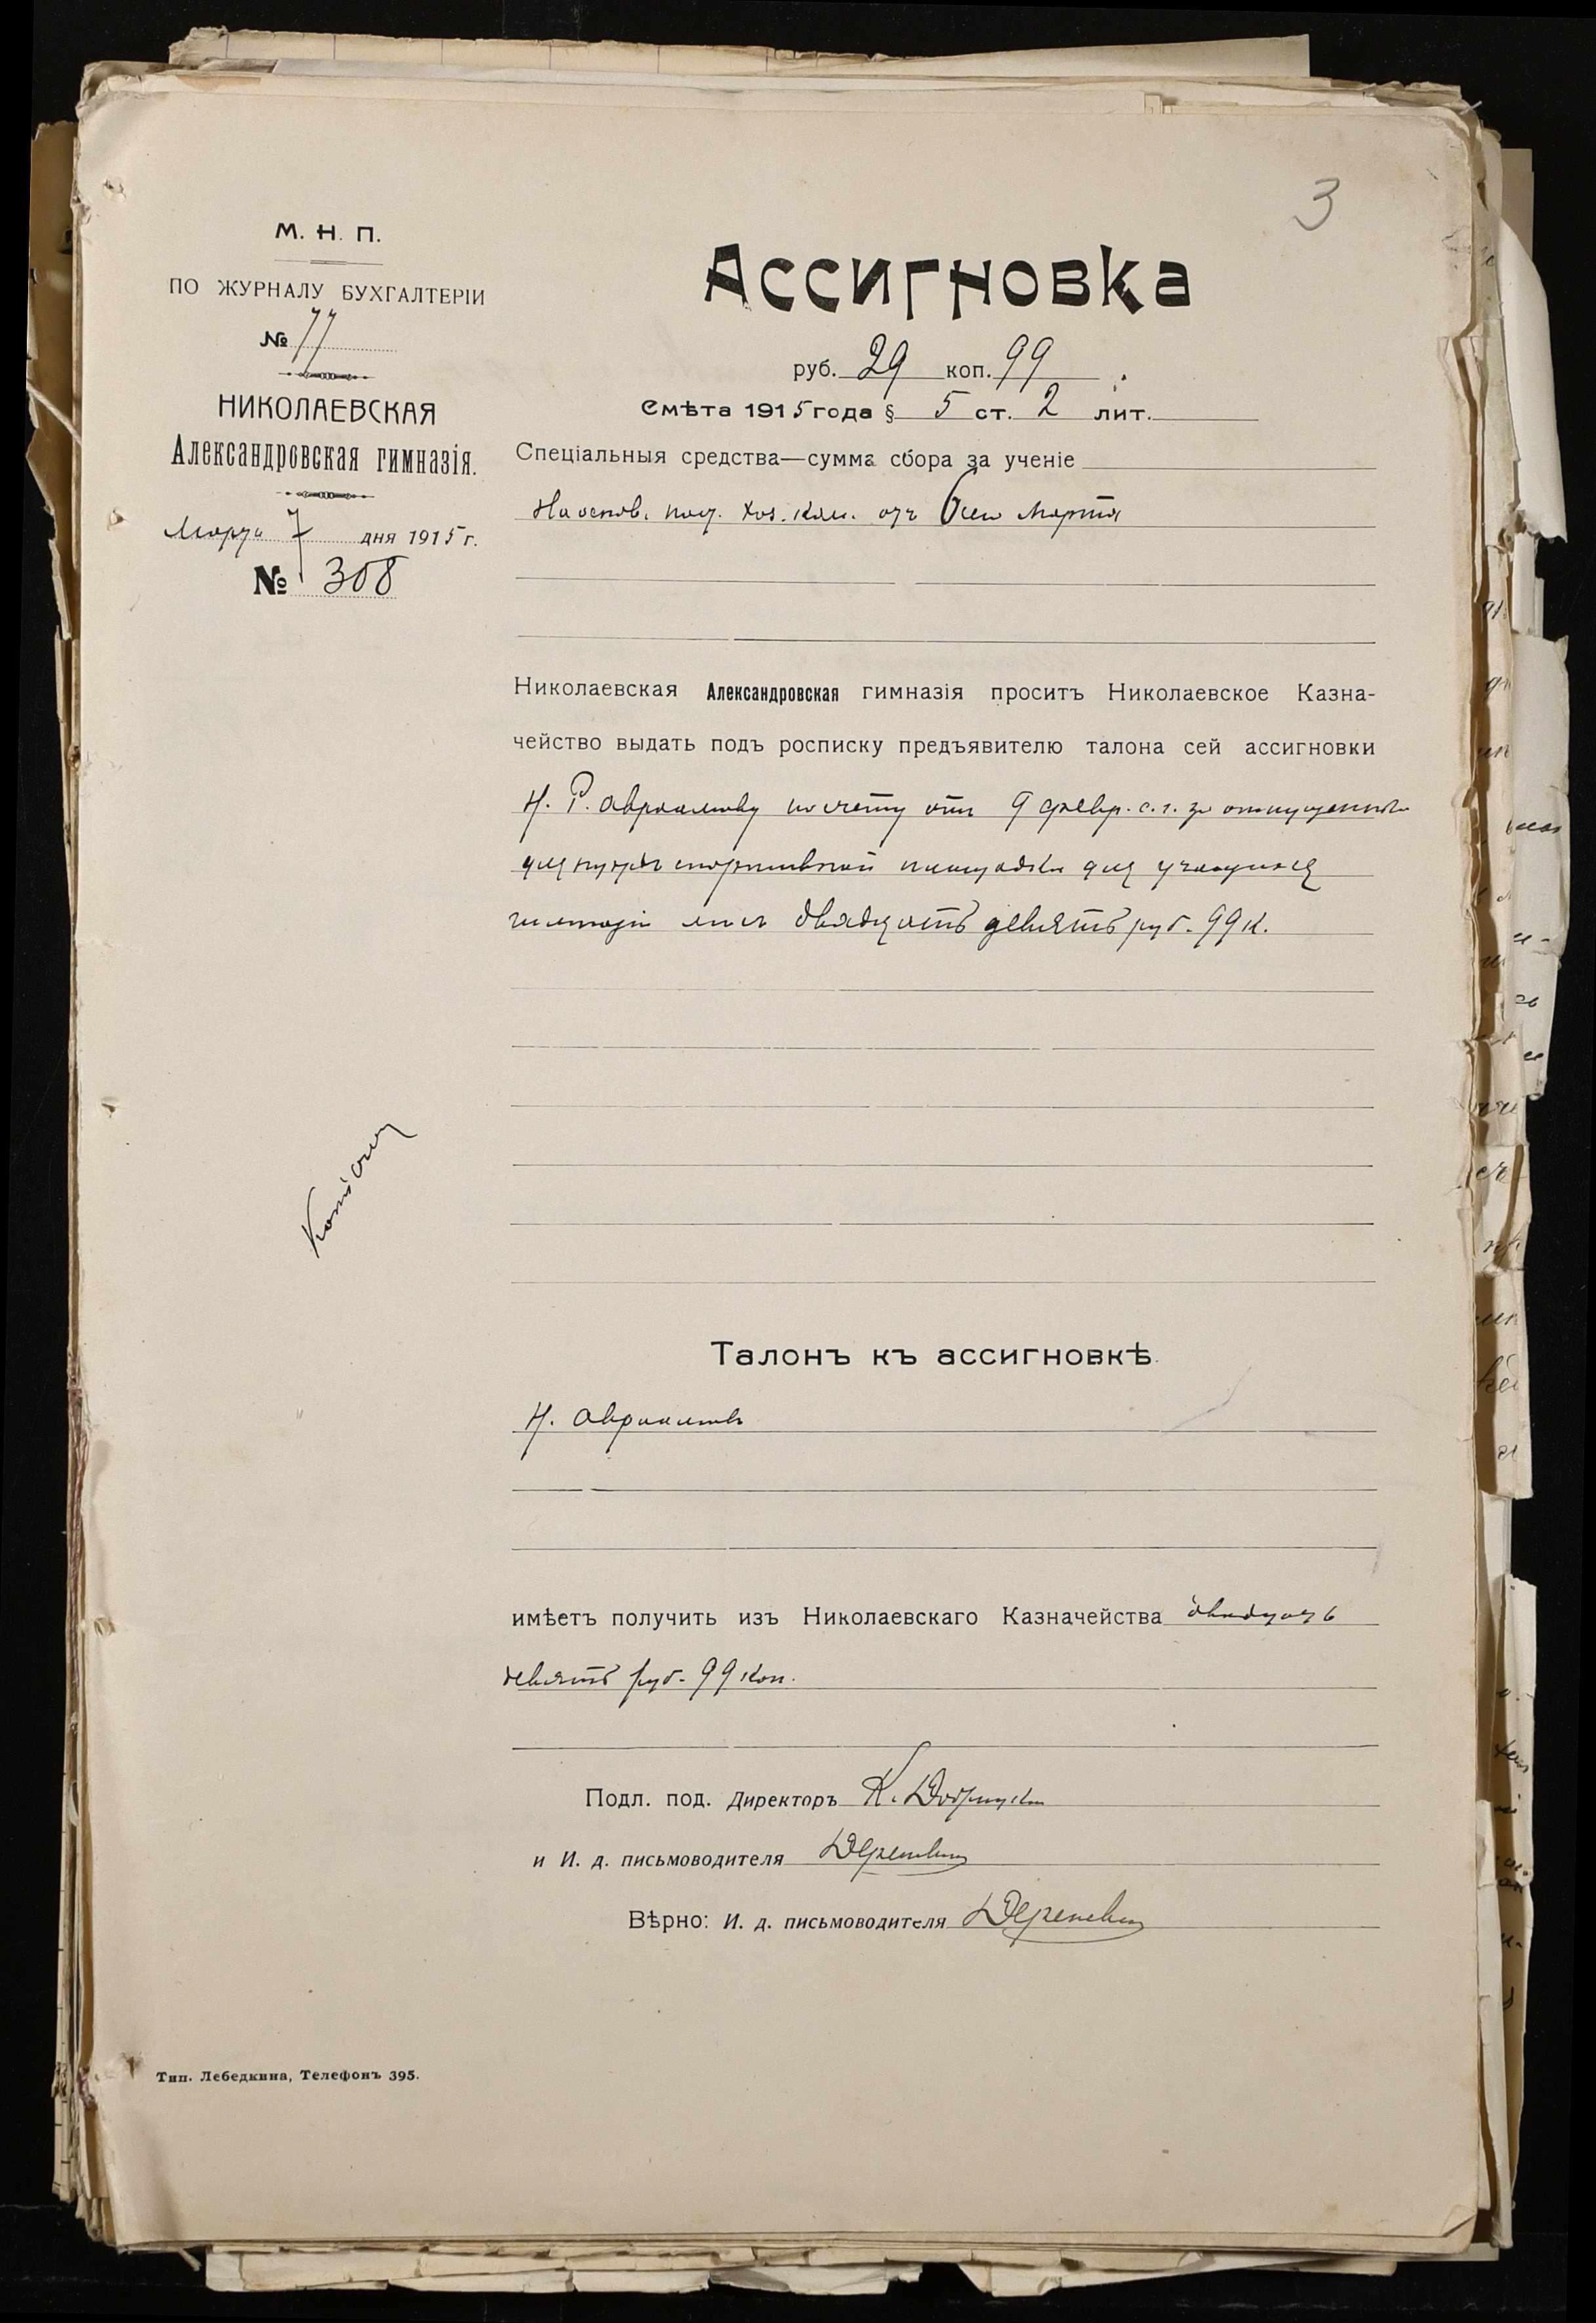 3
М. Н. П.
ПО ЖУРНАЛУ БУХГАЛТЕРІИ
№ 77
НИКОЛАЕВСКАЯ
Александровская гимназія.
Марта 7 дня 1915 г.
№ 308
Ассигновка
руб. 29 коп. 99
Смѣта 1915 года § 5 ст. 2 лит.
Спеціальныя средства—сумма сбора за ученіе
На основ. пост. хоз. ком. отъ 6сего марта
Николаевская Александровская гимназія проситъ Николаевское Казна-
чейство выдать подъ росписку предъявителю талона сей ассигновки
Н. Р. Авраамову по счету отъ 9 февр. с. г. за отпущенные
для нуждъ спортивной площадки для учащихся
гимназіи двадцать девять руб. 99 к.
Копію
Талонъ къ ассигновкѣ.
Н. Авраамовъ
имѣетъ получить изъ Николаевскаго Казначейства двадцать
девять руб. 99 коп.
Подл. под. Директоръ К.
и И. д. письмоводителя
Вѣрно: И. д. письмоводителя
Тип. Лебедкина, Телефонъ 395.